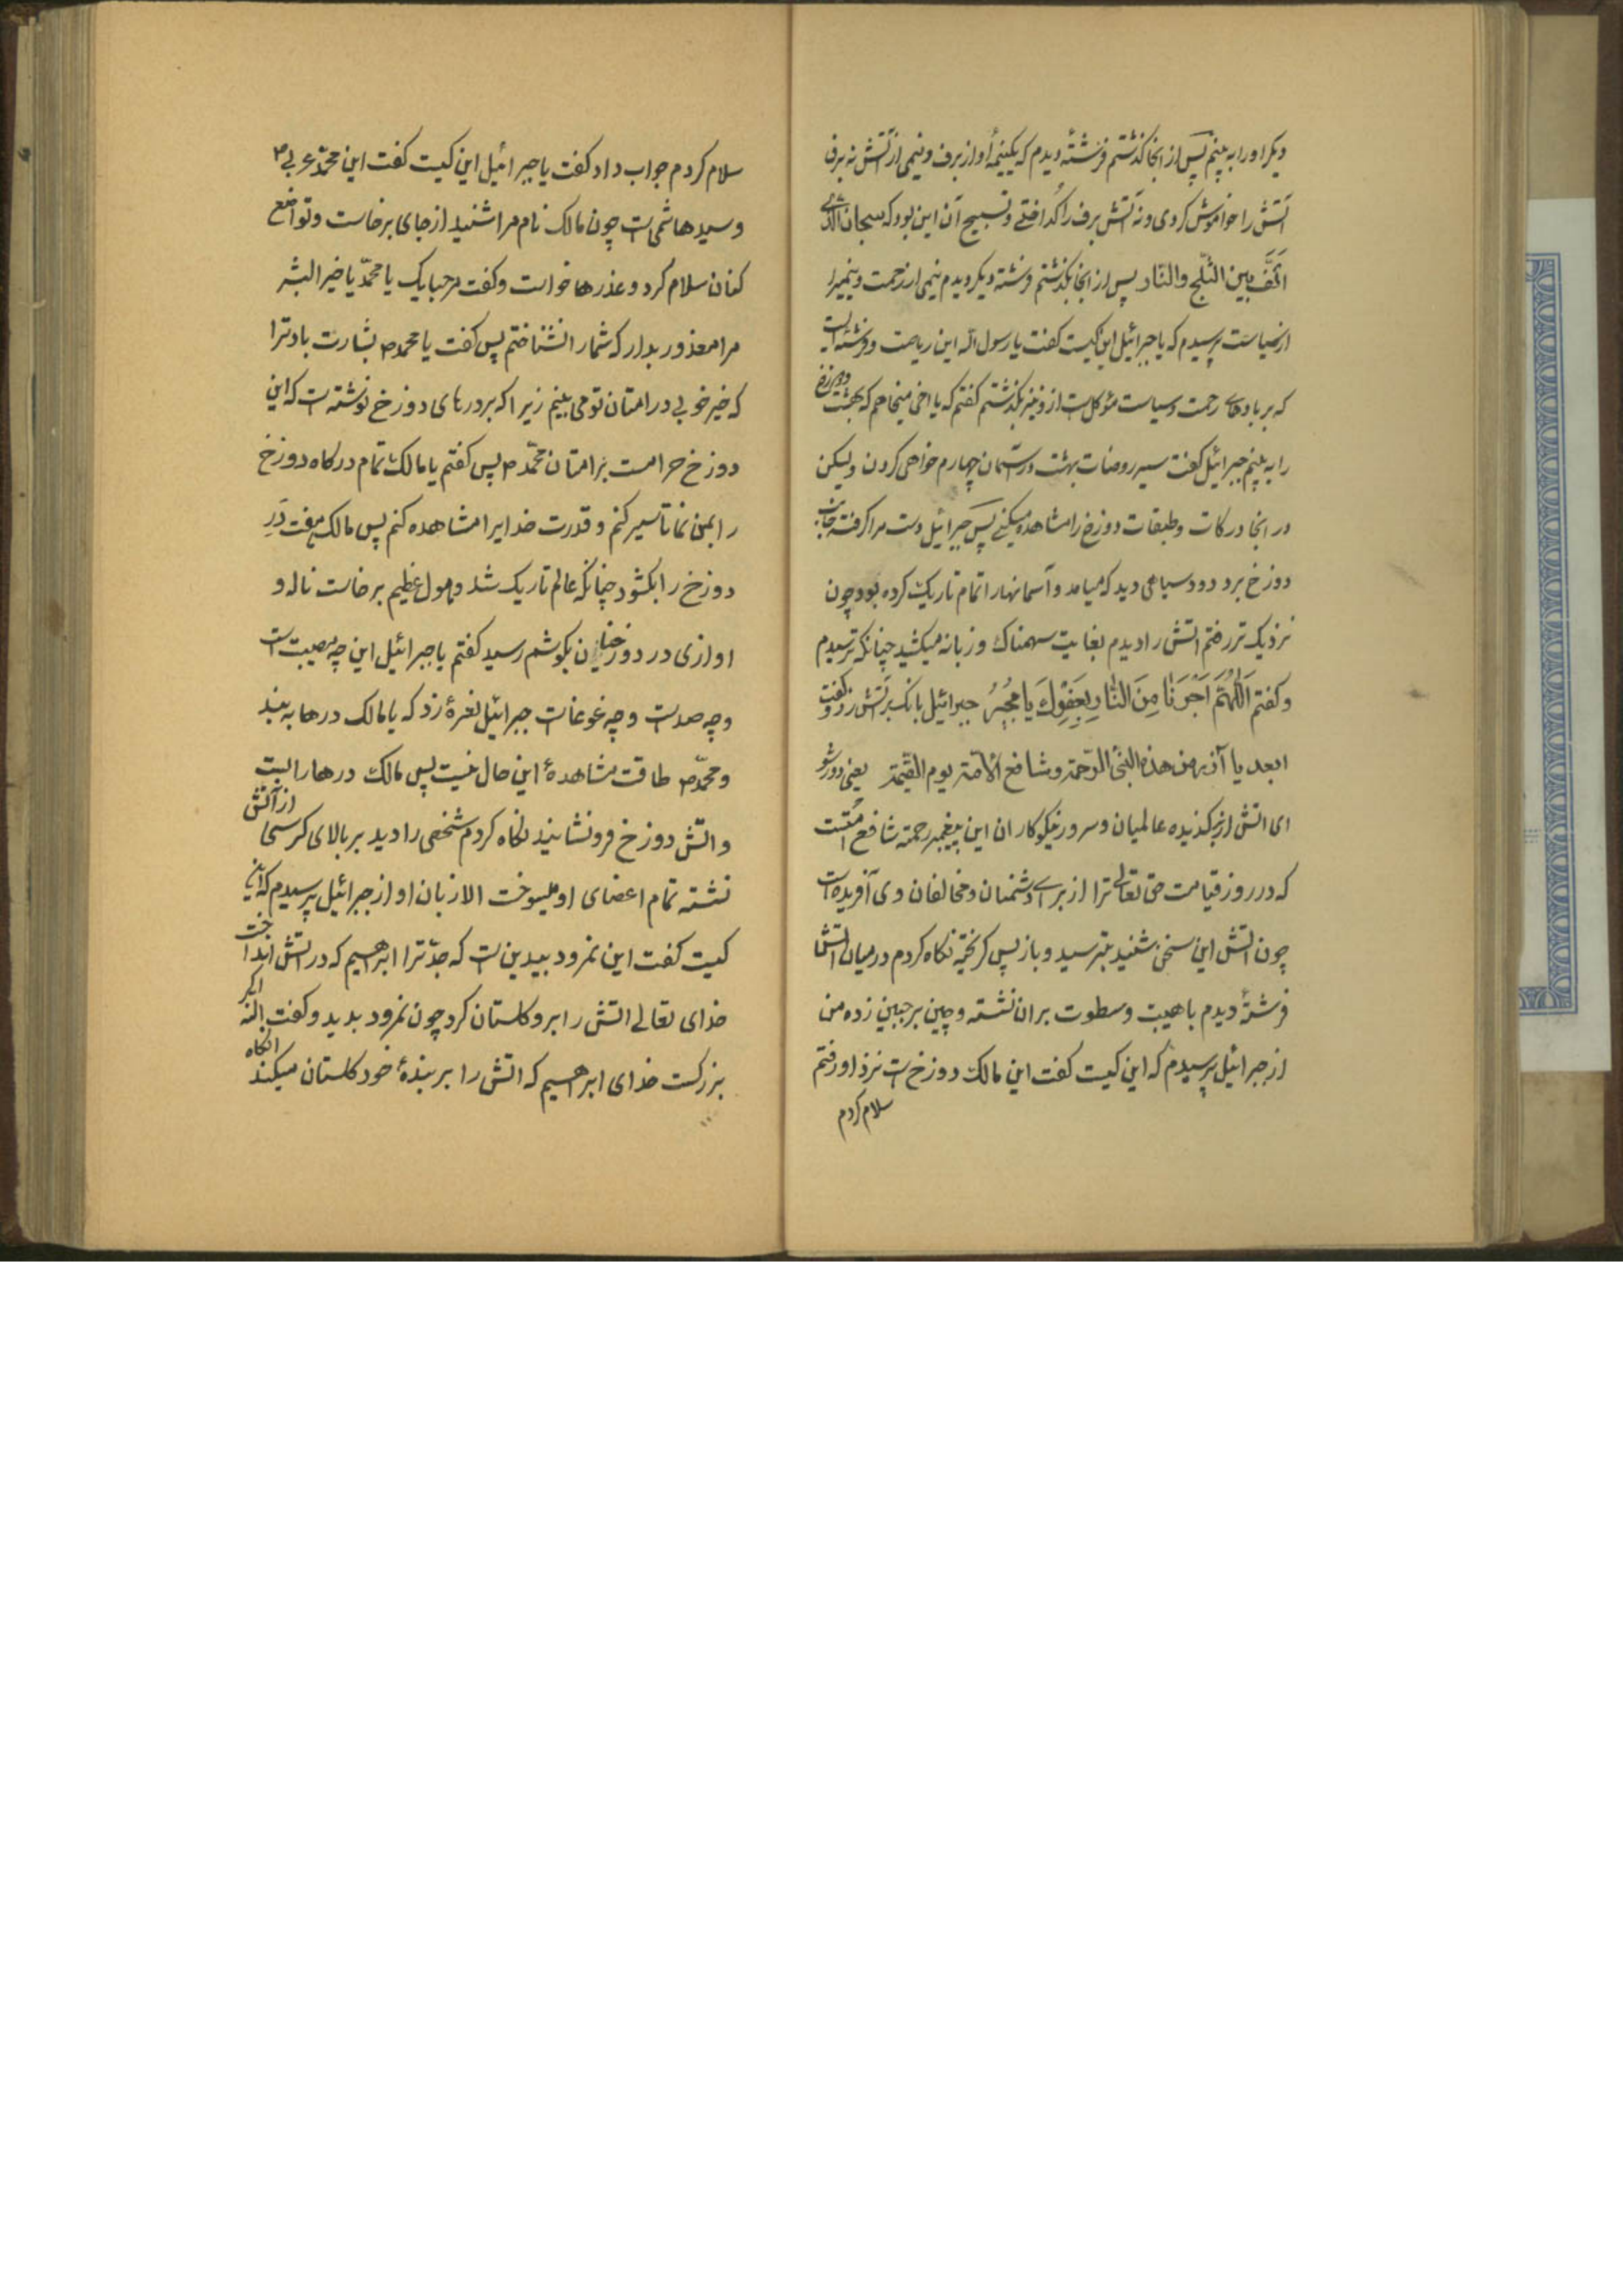 دیکر اورا به بینم پس از انجا کذشتم فرشتهٔ دیدم که یکنیمهٔ او از برف و نیمی از آتش نه برف
آتش را خواموش کردی و نه آتش برف را کداختے و تسبیح آن این بود که سبحان الذی
الّف بین الثلج والنّار پس از انجا بکذشتم فرشته دیکر دیدم نیمی از رحمت و نیمیرا
از سیاست پرسیدم که یا جبرائیل این کیست کفت یا رسول اله این و فرشته ایست
که بر بادهای رحمت و سیاست مؤکل است ازو نیز بکذشتم کفتم که یا اخی میخاهم که بهشت و دوزخ
را به بینم جبرائیل کفت سیر روضات بهشت در آسمان چهارم خواهی کردن ولیکن
در انجا درکات و طبقات دوزخ را مشاهده میکنے پس جبرائیل دست مرا کرفته بجانب
دوزخ برد دود سیاهی دید که میامد و آسمانهارا تمام تاریک کرده بود چون
نزدیک تر رفتم اتش را دیدم بغایت سهمناک و زبانه میکشید چنانکه ترسیدم
و کفتم اَللّهُمَّ اَجِرنَا مِنَ النّارِ بِعَفوِكَ یا مُجیرُ جبرائیل بانک بر آتش زد و کفت
ابعد یا آذر من هذه النبی الرّحمة و شافع الأمّة یوم القیمة یعنی دور شو
ای اتش از برکذیده عالمیان و سرور نیکوکاران این پیغمبر رحمة شافع امّتست
که در روز قیامت حق تعالی ترا از برای دشمنان و مخالفان وی آفریده است
چون اتش این سخن بشنید بترسید و باز پس کریخته نکاه کردم در میان اتش
فرشتهٔ دیدم با هیبت و سطوت بران نشته و چین بر جبین زده من
از جبرائیل پرسیدم که این کیست کفت این مالک دوزخ است نزد او رفتم
سلام کردم
سلام کردم جواب داد کفت یا جبرائیل این کیست کفت این محمّد عربی ص
و سید هاشمی است چون مالک نام مرا شنید از جای برخاست و تواضع
کنان سلام کرد و عذرها خواست و کفت مرحبا بک یا محمّد یا خیر البشر
مرا معذور بدار که شمارا نشناختم پس کفت یا محمد ص بشارت باد ترا
که خیر خوبی در امتان تو می بینم زیرا که بر درهای دوزخ نوشته است که این
دوزخ حرامست بر امتان محمّد ص پس کفتم یا مالک تمام درکاه دوزخ
را بمن نما تا سیر کنم و قدرت خدایرا مشاهده کنم پس مالک هفت دَرِ
دوزخ را بکشود چنانکه عالم تاریک شد و هول عظیم برخاست ناله و
اوازی در دوزخیان بکوشم رسید کفتم یا جبرائیل این چه مصیبت است
و چه صدست و چه غوغاست جبرائیل نعرهٔ زد که یا مالک درها به بند
و محمّد ص طاقت مشاهدهٔ این حال نیست پس مالک درهارا ببست
و اتش دوزخ فرونشانید نکاه کردم شخصی را دید بر بالای کرسی از آتش
نشته تمام اعضای او میسوخت الا زبان او از جبرائیل پرسیدم که این
کیست کفت این نمرود بیدین است که جدّ ترا ابراهیم که در اتش انداخت
خدای تعالی اتش را برو کلستان کرد چون نمرود بدید و کفت اللّه اکبر
بزرکست خدای ابراهیم که اتش را بر بندهٔ خود کلستان میکند انکاه